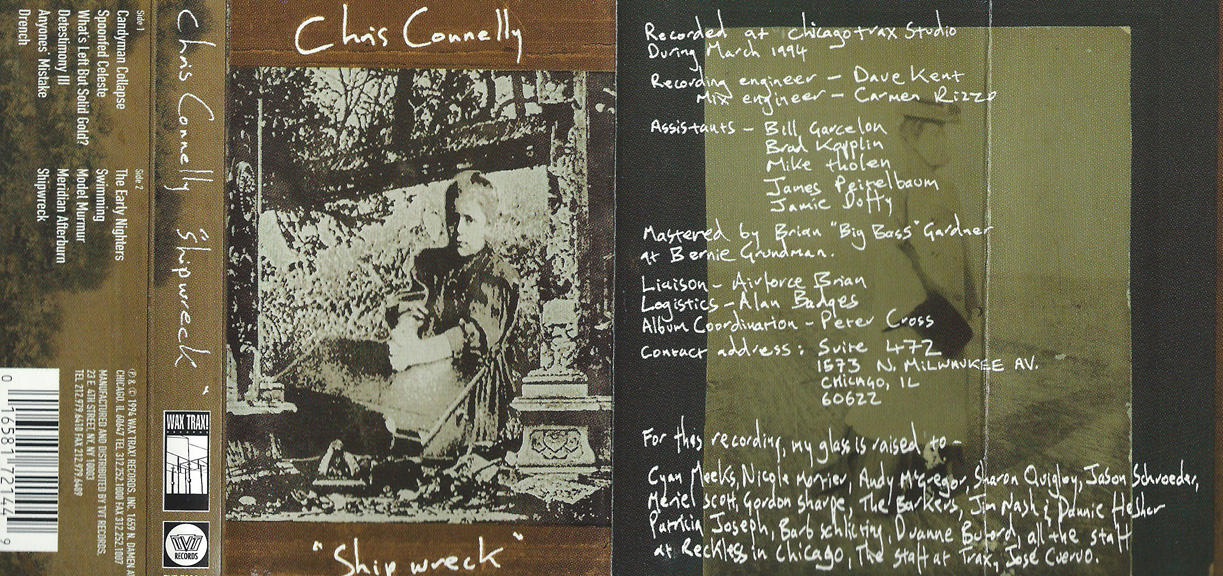 Side 1
Candyman Collapse
Spoonfed Celeste
What's Left But Solid Gold?
Detestimony III
Anyones' Mistake
Drench
Side 2
The Early Nighters
Swimming
Model Murmur
Meridian Afterburn
Shipwreck
℗ & © 1994 WAX TRAX! RECORDS, INC. 1659 N. DAMEN
CHICAGO, IL 60647 TEL 312.252.1000 FAX 312.252.1007
MANUFACTURED AND DISTRIBUTED BY TVT RECORDS.
23 E 4TH STREET NY, NY 10003
TEL 212.979.6410 FAX 212.979.6489
0 16581 72144 9
Chris Connelly "Shipwreck"
WAX TRAX!
TVT
RECORDS
Chris Connelly
"Shipwreck"
Recorded at Chicagotrax Studio
During March 1994
Recording engineer - Dave Kent
Mix engineer - Carmen Rizzo
Assistants - Bill Garcelon
Brad Kopplin
Mike Tholen
James Peitelbaum
Jamie Duffy
Mastered by Brian "Big Bass" Gardner
at Bernie Grundman.
Liaison - Airforce Brian
Logistics - Alan Badges
Album Coordination - Peter Cross
Contact address: Suite 472
1573 N. MILWAUKEE AV.
CHICAGO, IL
60622
For this recording, my glass is raised to -
Cyan Meeks, Nicola Morrier, Andy McGregor, Sharon Quigley, Jason Schroeder,
Meriel Scott, Gordon Sharpe, The Barkers, Jim Nash & Dannie Flesher
Patricia Joseph, Barb Schlicting, Duanne Buford, all the staff
at Reckless in Chicago, The staff at Trax, Jose Cuervo.